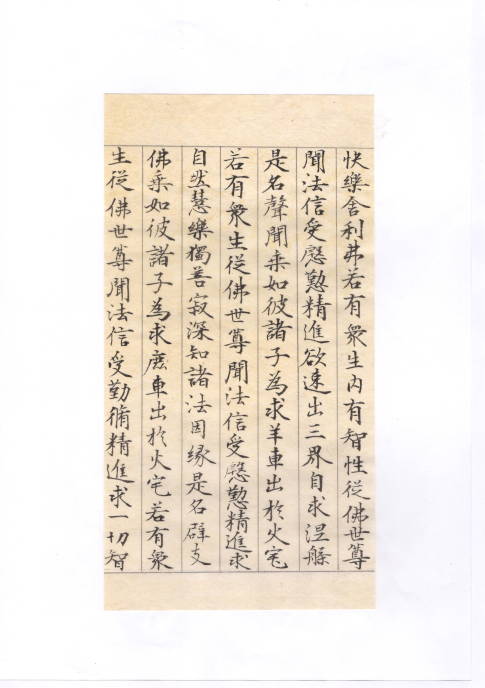 快樂舍利弗若有衆生內有智性從佛世尊
聞法信受慇懃精進欲速出三界自求涅槃
是名聲聞乘如彼諸子為求羊車出於火宅
若有衆生從佛世尊聞法信受慇懃精進求
自然慧樂獨善寂深知諸法因緣是名辟支
佛乘如彼諸子為求鹿車出於火宅若有衆
生從佛世尊聞法信受勤脩精進求一切智